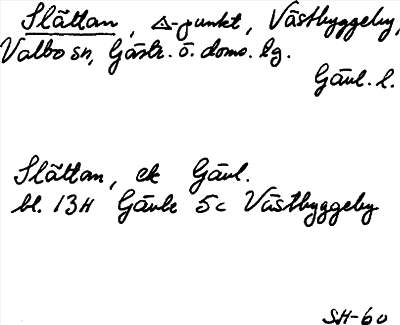 Slättan, Δ-punkt, Västbyggeby,
Valbo sn, Gästr. ö. doms. hg.
Gävl. l.
Slättan, ek Gävl.
bl. 13H Gävle 5c Västbyggeby
SH-60